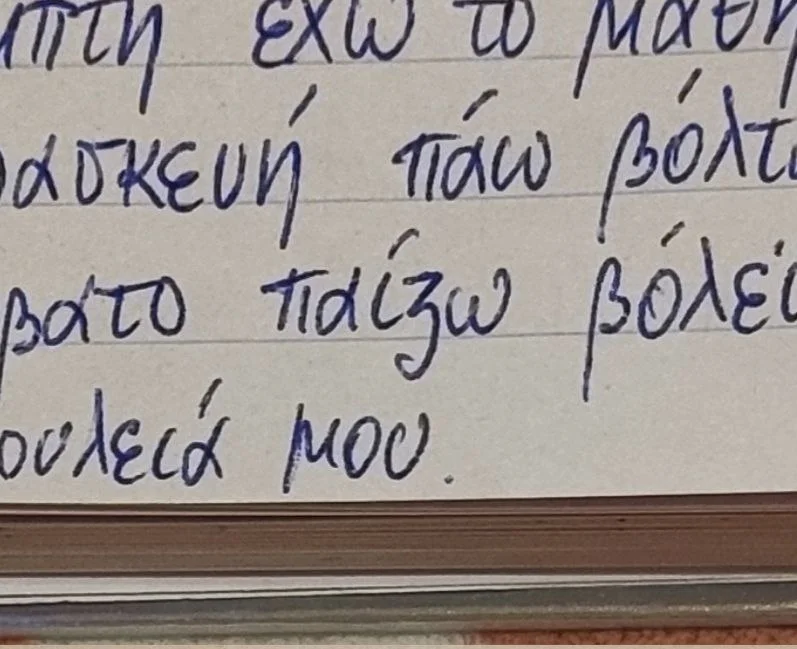 μπτη έχω το μαθη
ασκευή πάω βόλτ
βατο παίζω βόλεϊ
ουλειά μου.